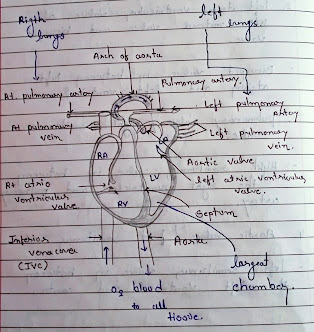 Rigth
lungs
left
lungs
Arch of aorta
Rt pulmonary artery
Pulmonary artery.
Left pulmonary
Artery
Rt pulmonary
vein
Left pulmonary
vein.
RA
LA
Aortic valve
LV
left atric ventricular
valve.
Rt atrio
ventriculus
valve
RV
Septum
Inferior
vena cava
(IVC)
Aorta
largest
chamber.
O2 blood
to all
tissue.